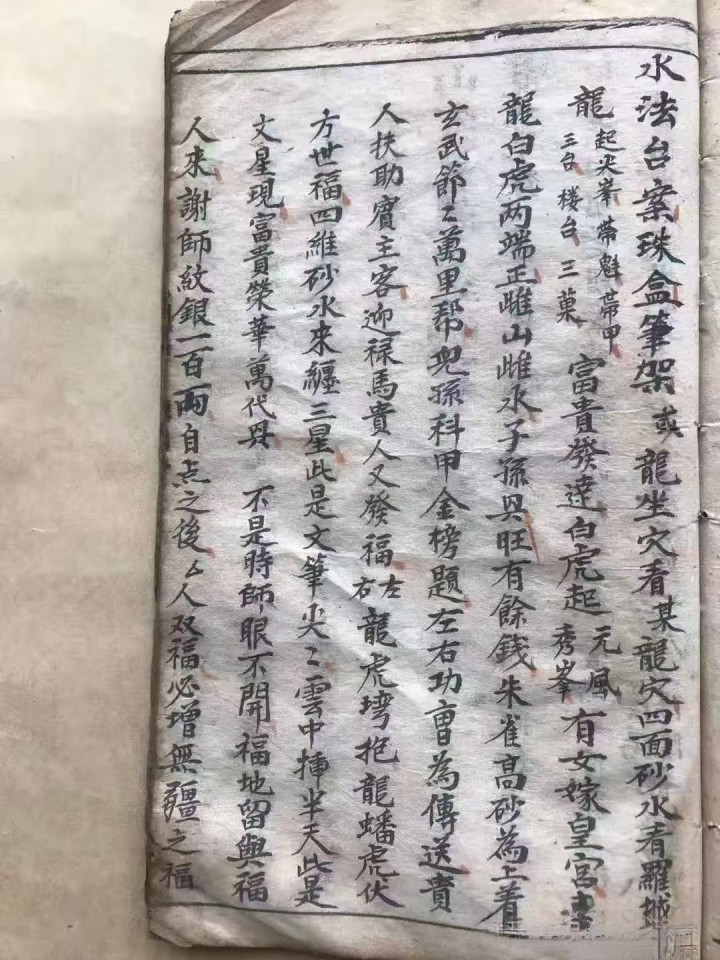 水法台案珠盒筆架或龍坐穴看某龍穴四面砂水看羅城
龍起尖峯帶魁帶甲三台楼台三菓富貴發達白虎起元風秀峯有女嫁皇宮青
龍白虎两端正雌山雌水子孫兴旺有餘銭朱雀高砂為上着
玄武節〻萬里帮兒孫科甲金榜題左右功曹為傳送貴
人扶助賓主客迎禄馬貴人又發福左右龍虎塆抱龍蟠虎伏
方世福四維砂水来纏三星此是文筆尖〻雲中揷半天此是
文星現富貴榮華萬代兴 不是時師眼不開福地留與福
人来謝師紋銀一百両自点之後人双福必增無疆之福